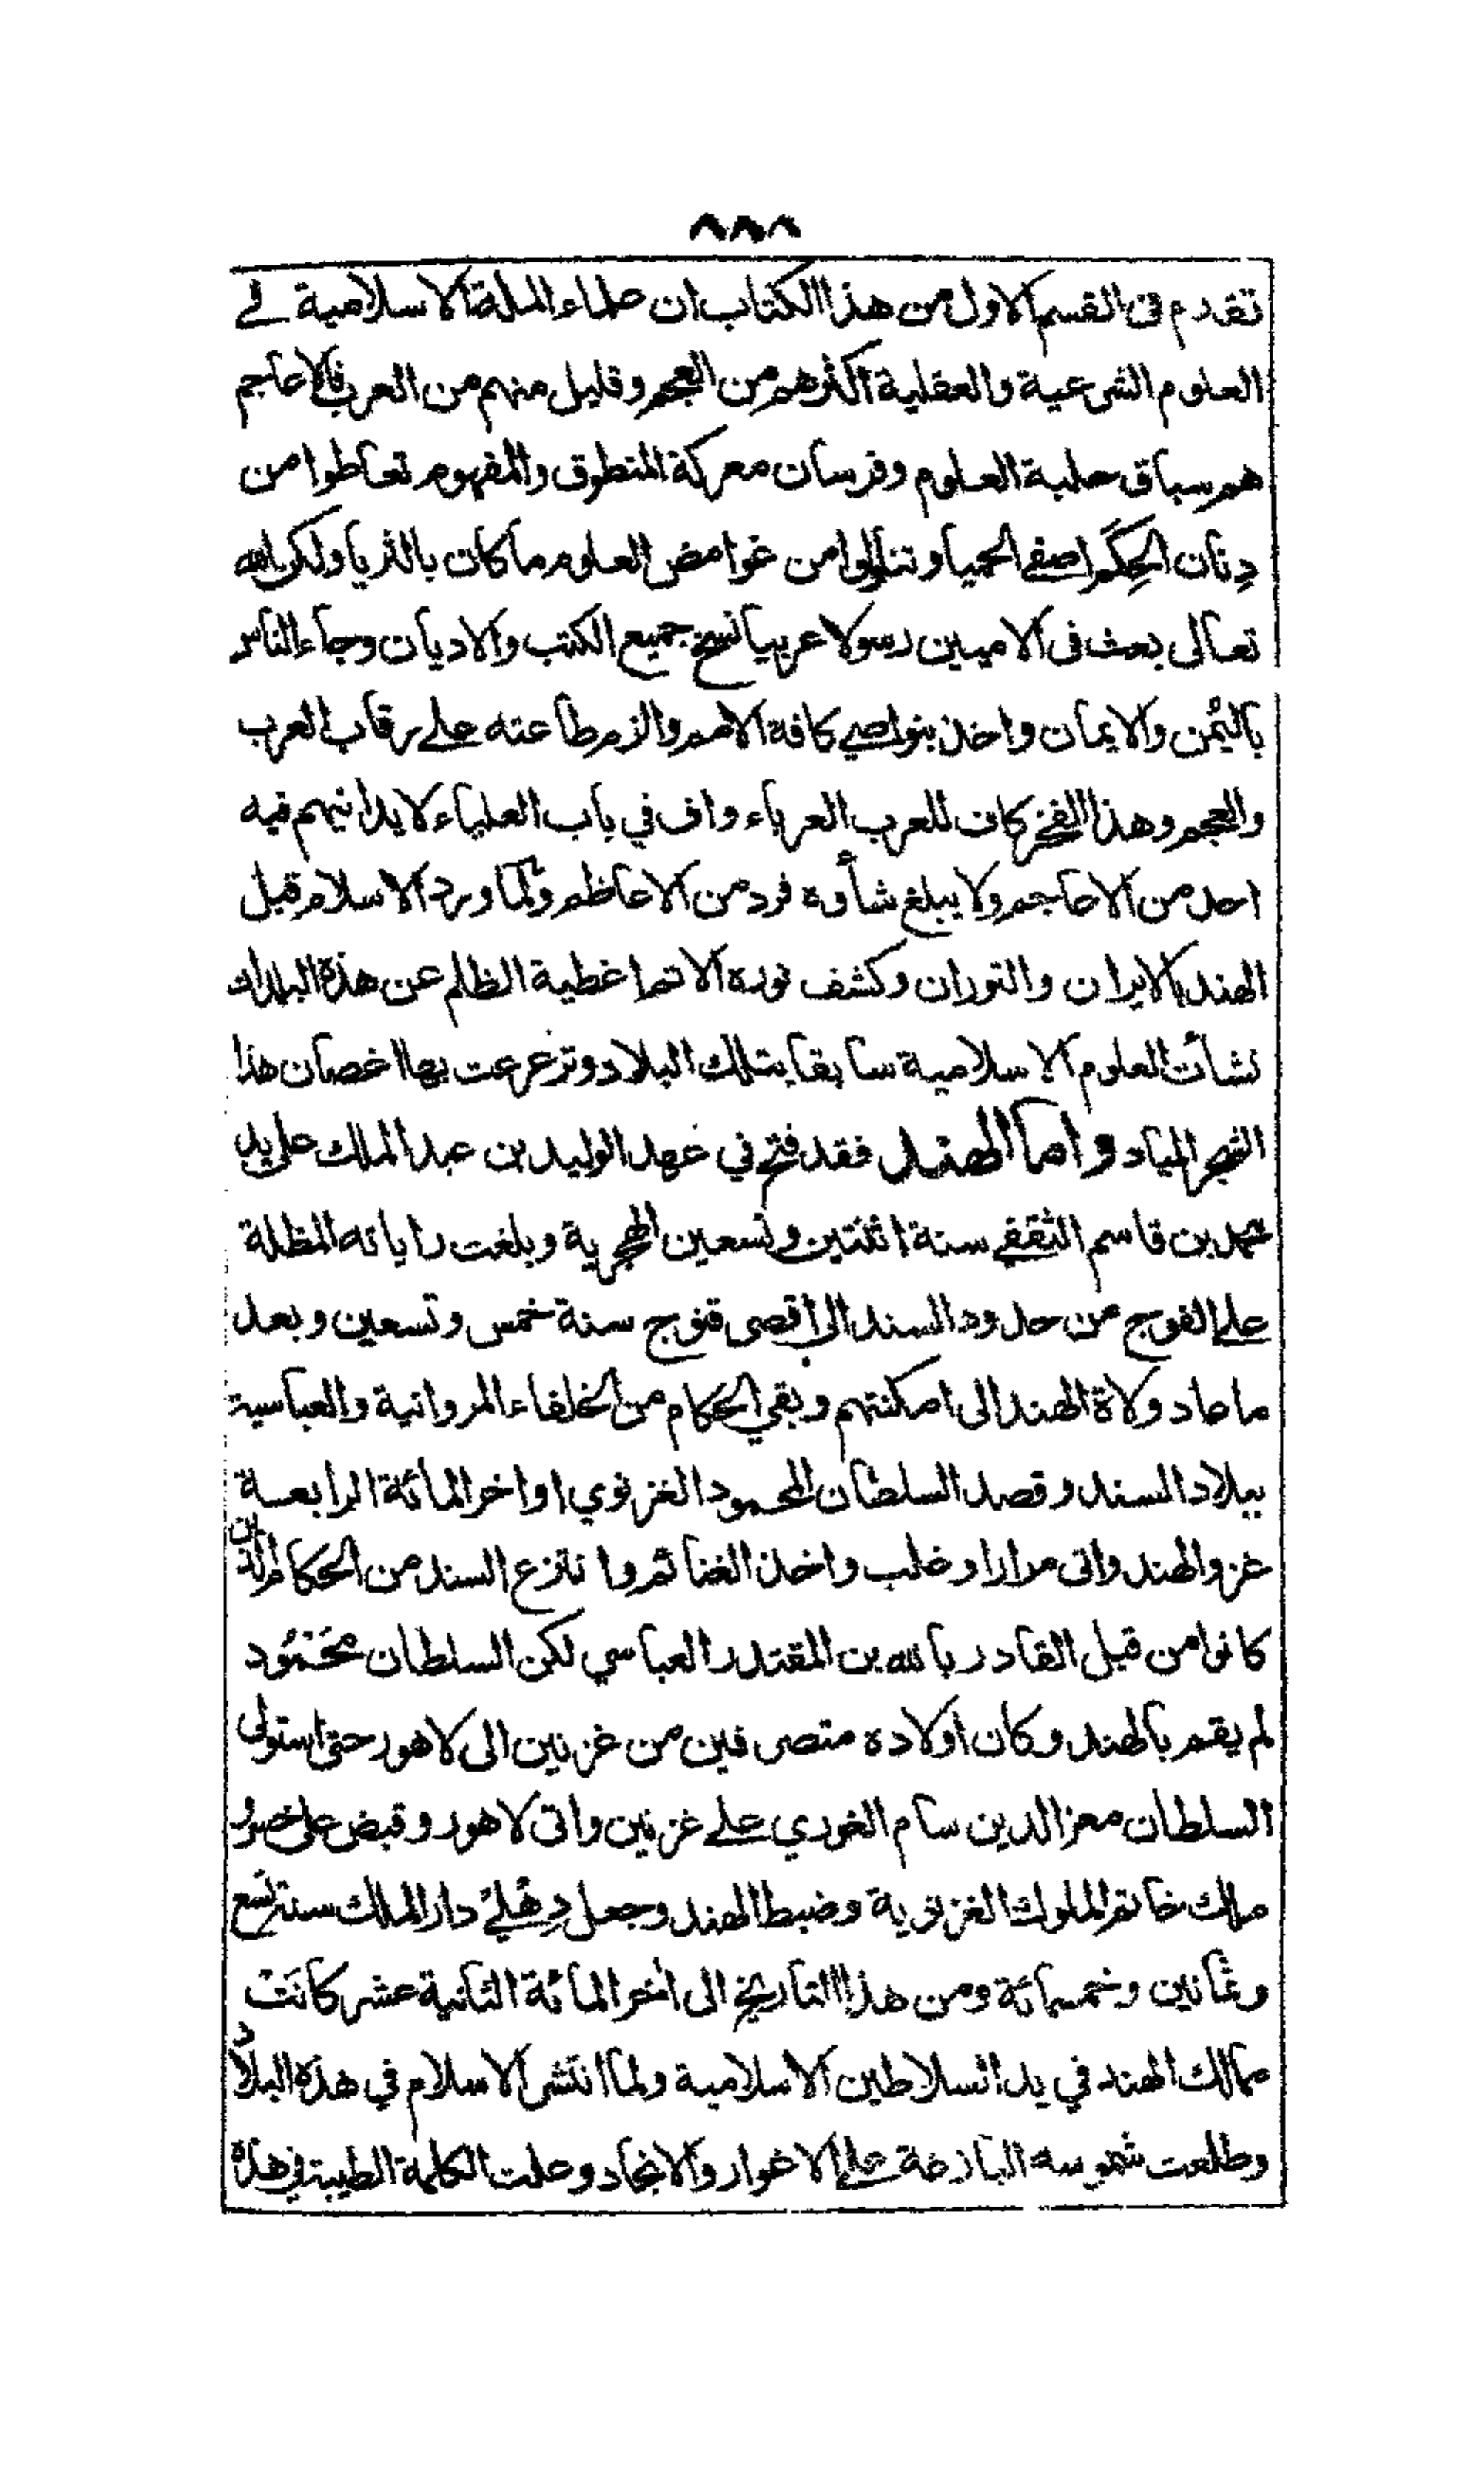 ٨٨٨
تقدم فى القسم الاول من هذا الكتاب ان علماء الملة الاسلامية في
العلوم الشرعية والعقلية اكثرهم من العجم وقليل منهم من العرب فالاعاجم
هم سباق حلبة العلوم وفرسان معركة المنطوق والمفهوم تعاطوا من
دِنان الحِكَم اصفى الحميا وتناولوا من غوامض العلوم ما كان بالثريا ولكن الله
تعالى بعث فى الاميين رسولا عربيا نسخ جميع الكتب والاديان وجاء الناس
باليُمن والايمان واخذ بنواصي كافة الامم والزم طاعته على رقاب العرب
والعجم وهذا الفخر كان للعرب العرباء واف في باب العلياء لا يدانيهم فيه
احد من الاعاجم ولا يبلغ شأوه فرد من الاعاظم ولمّا ورد الاسلام قبل
الهند بالايران والتوران وكشف نوره الاتم اغطية الظلم عن هذه البلدان
نشأت العلوم الاسلامية سابقا بتلك البلاد وترعرعت بها اغصان هذا
الشجر المياد واما الهند فقد فتح في عهد الوليد بن عبد الملك على يد
محمد بن قاسم الثقفى سنة اثنتين وتسعين الهجرية وبلغت راياته المظلة
على الفوج من حدود السند الى اقصى قنوج سنة خمس وتسعين وبعد
ما عاد ولاة الهند الى امكنتهم وبقي الحكام من الخلفاء المروانية والعباسية
ببلاد السند وقصد السلطان المحمود الغزنوي اواخر المائة الرابعة
غزو الهند واتى مرارا وغلب واخذ الغنائم وانتزع السند من الحكام الذين
كانوا من قبل القادر بالله بن المقتدر العباسي لكن السلطان محَمُود
لم يقم بالهند وكان اولاده متصرفين من غزنين الى لاهور حتى استولى
السلطان معز الدين سام الغوري على غزنين واتى لاهور وقبض على خسرو
ملك خاتم الملوك الغزنوية وضبط الهند وجعل دِهْلِيْ دار الملك سنة تسع
وثمانين وخمسمائة ومن هذا التاريخ الى اخر المائة الثانية عشر كانَتْ
ممالك الهند في يد السلاطين الاسلامية ولما انتشر الاسلام في هذه البلاد
وطلعت شموسه البازغة على الاغوار والانجاد وعلت الكلمة الطيبة في هذه